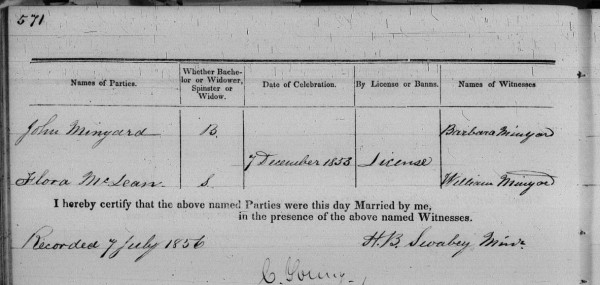 571
Names of Parties. Whether Bachelor or Widower, Spinster or Widow. Date of Celebration. By License or Banns. Names of Witnesses
John Minyard B. Barbara Minyard
7 December 1853 License
Flora McLean S. William Minyard
I hereby certify that the above named Parties were this day Married by me,
in the presence of the above named Witnesses.
Recorded 7 July 1856 H. B. Swabey Minr.
C. Young